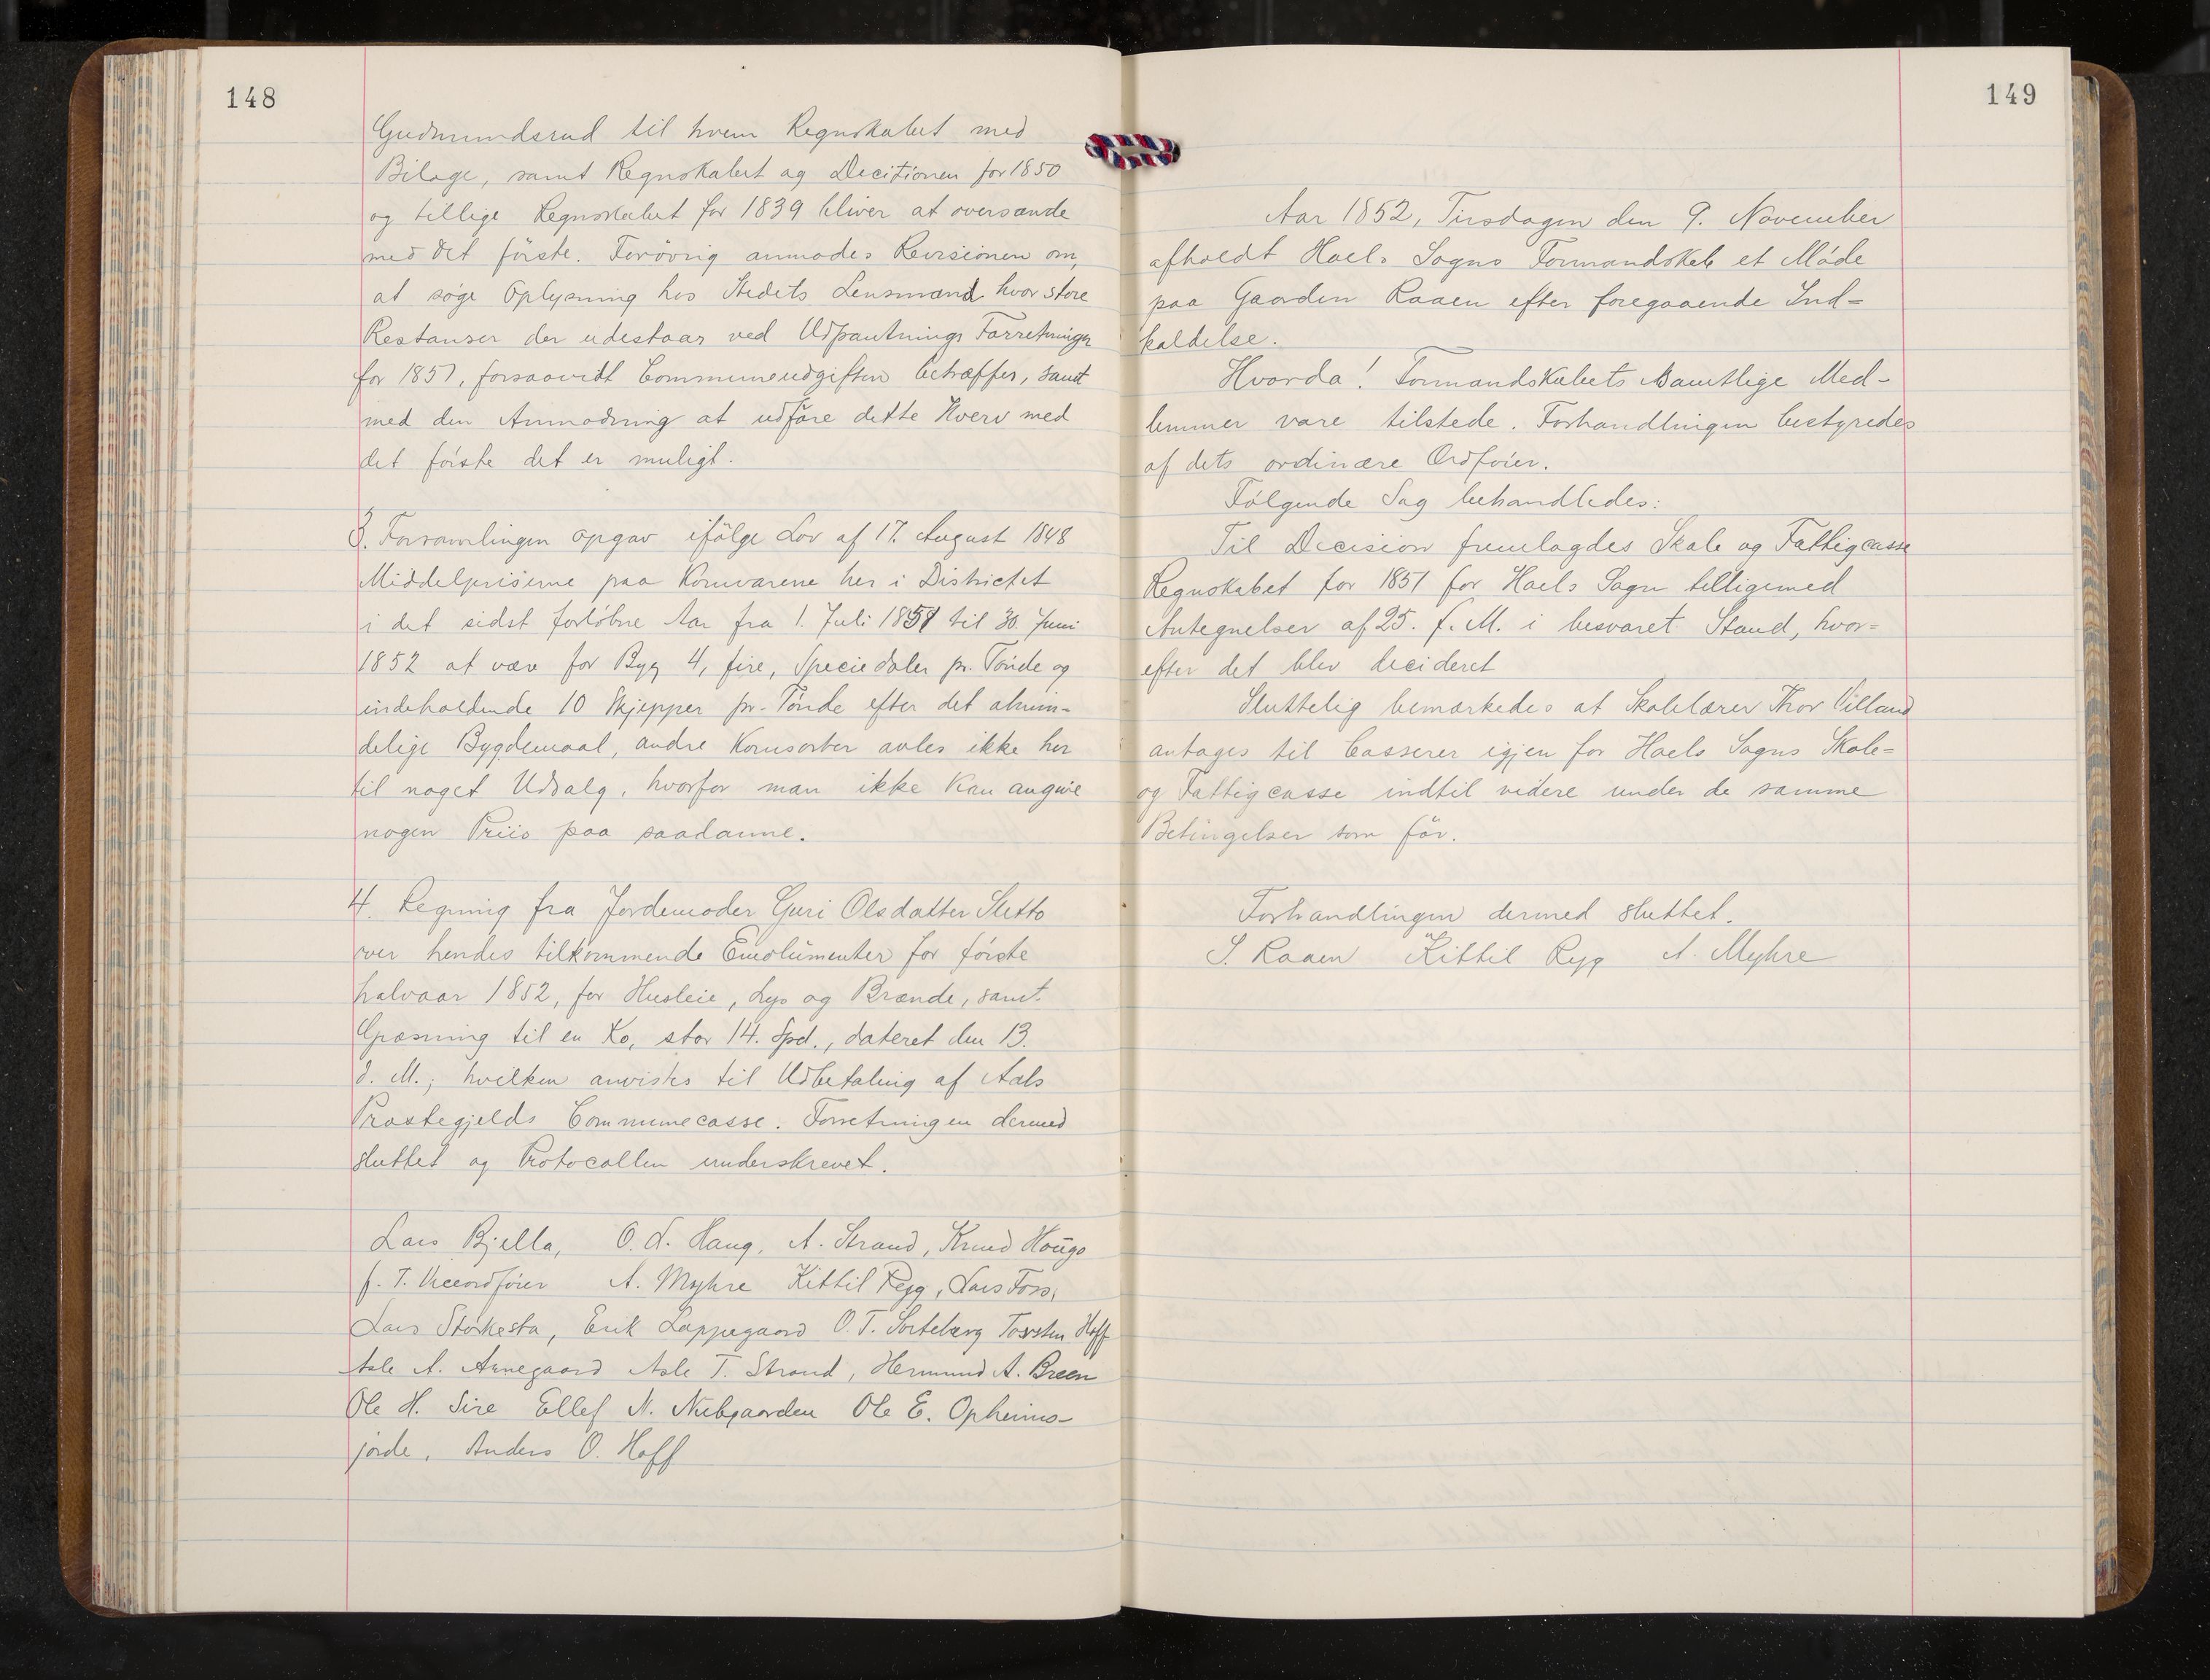 148
Gudmundsrud til hvem Regnskabet med
Bilage, samt Regnskabet og Decitionen for 1850
og tillige Regnskabet for 1839 bliver at oversænde
med det förste. Forövrig anmodes Revisionen om,
at söge Oplysning hos Stedets Lensmand hvor store
Restanser der udestaar ved Udpantnings Forretninger
for 1851, forsaavidt Communeudgiften betræffer, samt
med den Anmodning at udföre dette Hverv med
det förste det er muligt.
3. Forsamlingen opgav ifölge Lov af 17. August 1848
Middelpriserne paa Kornvarene her i Districtet
i det sidst forlöbne Aar fra 1. Juli 1851 til 30. Juni
1852 at være for Byg 4, fire, Speciedaler pr. Tönde og
indeholdende 10 Skjepper pr. Tönde efter det almin-
delige Bygdemaal, andre Kornsorter avles ikke her
til noget Udsalg, hvorfor man ikke kan angive
nogen Priis paa saadanne.
4. Regning fra Jordemoder Guri Olsdatter Sletto
over hendes tilkommende Emolumenter for förste
halvaar 1852, for Husleie, Lys og Brænde, samt
Græsning til en Ko, stor 14. Spd., dateret den 13.
d. M.; hvilken anvistes til Udbetaling af Aals
Præstegjelds Communecasse. Forretningen dermed
sluttet og Protocollen underskrevet.
Lars Bjella, O. d. Haug, A. Strand, Knud Hougo
f. T. Viceordförer A. Myhre Kittil Ryg, Lars Foss,
Lars Storkesta, Erik Lappegaard O. T. Sorteberg Torsten Hoff
Asle A. Arnegaard Asle T. Strand, Hermund A. Breen
Ole H. Sire Ellef N. Nubgaarden Ole E. Opheims-
jorde, Anders O. Hoff
149
Aar 1852, Tirsdagen den 9. November
afholdt Hoels Sogns Formandskab et Möde
paa Gaarden Raaen efter foregaaende Ind-
kaldelse.
Hvorda! Formandskabets samtlige Med-
lemmer vare tilstede. Forhandlingen bestyredes
af dets ordinære Ordförer.
Fölgende Sag behandledes:
Til Decision fremlagdes Skole og Fattigcasse
Regnskabet for 1851 for Hoels Sogn telligemed
Antegnelser af 25. f. M. i besvaret Stand, hvor=
efter det blev decideret
Sluttelig bemærkedes at Skolelærer Thor Villand
antages til Casserer igjen for Hoels Sogns Skole=
og Fattigcasse indtil videre under de samme
Betingelser som för.
Forhandlingen dermed sluttet.
S. Raaen Kittil Ryg A. Myhre